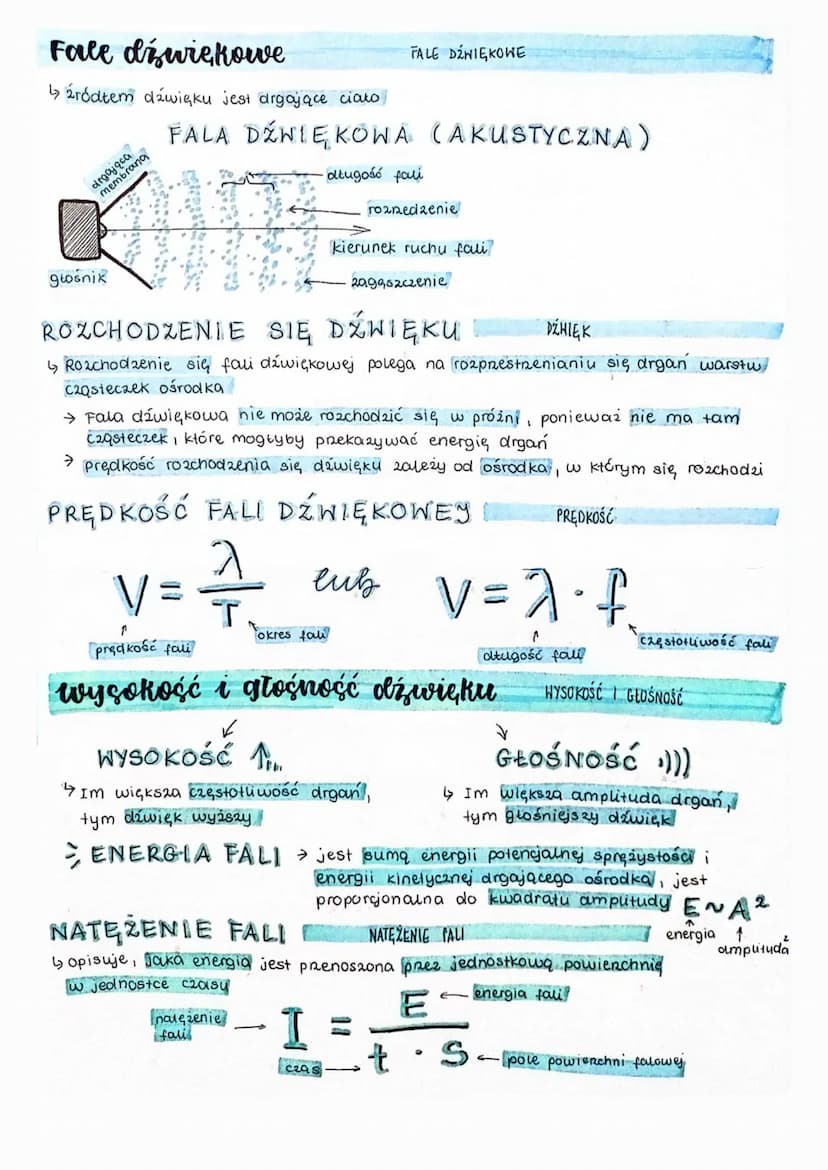 Fale dźwiękowe FALE DŹWIĘKOWE
↳ źródłem dźwięku jest drgające ciało
FALA DŹWIĘKOWA (AKUSTYCZNA)
drgająca
membrana
długość fali
rozrzedzenie
kierunek ruchu fali
głośnik
zagęszczenie
ROZCHODZENIE SIĘ DŹWIĘKU DŹWIĘK
↳ Rozchodzenie się fali dźwiękowej polega na rozprzestrzenianiu się drgań warstw
cząsteczek ośrodka
→ Fala dźwiękowa nie może rozchodzić się w próżni, ponieważ nie ma tam
cząsteczek, które mogłyby przekazywać energię drgań
→ prędkość rozchodzenia się dźwięku zależy od ośrodka, w którym się rozchodzi
PRĘDKOŚĆ FALI DŹWIĘKOWEJ PRĘDKOŚĆ
V = λ / T lub V = λ · f
prędkość fali okres fali długość fali częstotliwość fali
wysokość i głośność dźwięku WYSOKOŚĆ I GŁOŚNOŚĆ
WYSOKOŚĆ GŁOŚNOŚĆ
↳ Im większa częstotliwość drgań,
tym dźwięk wyższy
↳ Im większa amplituda drgań,
tym głośniejszy dźwięk
ENERGIA FALI → jest sumą energii potencjalnej sprężystości i
energii kinetycznej drgającego ośrodka, jest
proporcjonalna do kwadratu amplitudy E ~ A²
energia amplituda²
NATĘŻENIE FALI NATĘŻENIE FALI
↳ opisuje, jaka energia jest przenoszona przez jednostkową powierzchnię
w jednostce czasu
natężenie
fali
I = E / t · S
energia fali
czas
pole powierzchni falowej